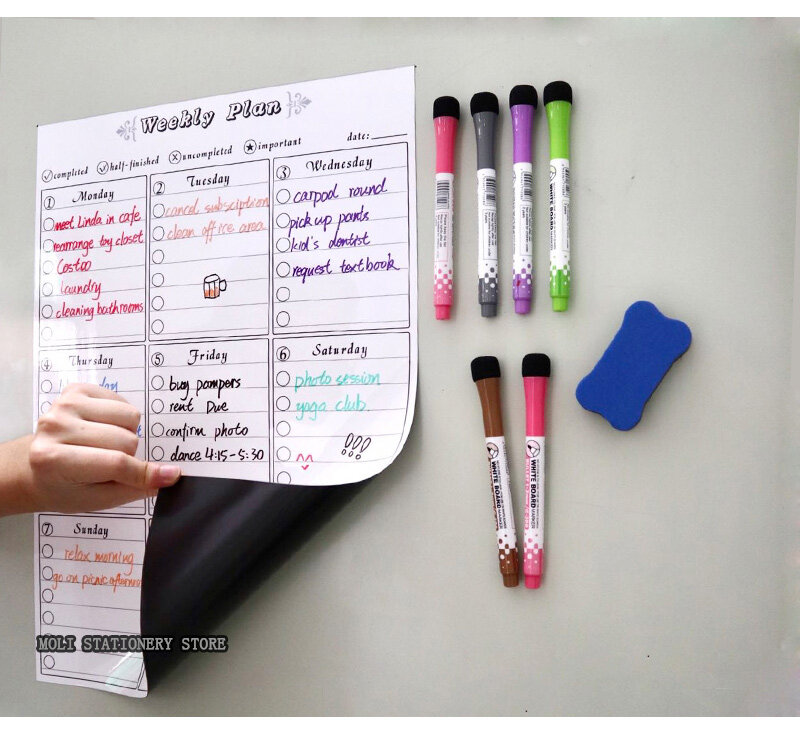 Weekly Plan
completed half-finished uncompleted important date:
1 Monday
meet Linda in cafe
rearrange toy closet
Costoo
laundry
cleaning bathrooms
2 Tuesday
cancel subsciption
clean office area
3 Wednesday
carpool round
pick up pants
kid's dentist
request textbook
4 Thursday
5 Friday
buy pampers
rent Due
confirm photo
dance 4:15-5:30
6 Saturday
photo session
yoga club.
!!!
7 Sunday
relax morning
go on picnic afternoon
MOLI STATIONERY STORE
WHITE BOARD
MARKER
WHITE BOARD
MARKER
WHITE BOARD
MARKER